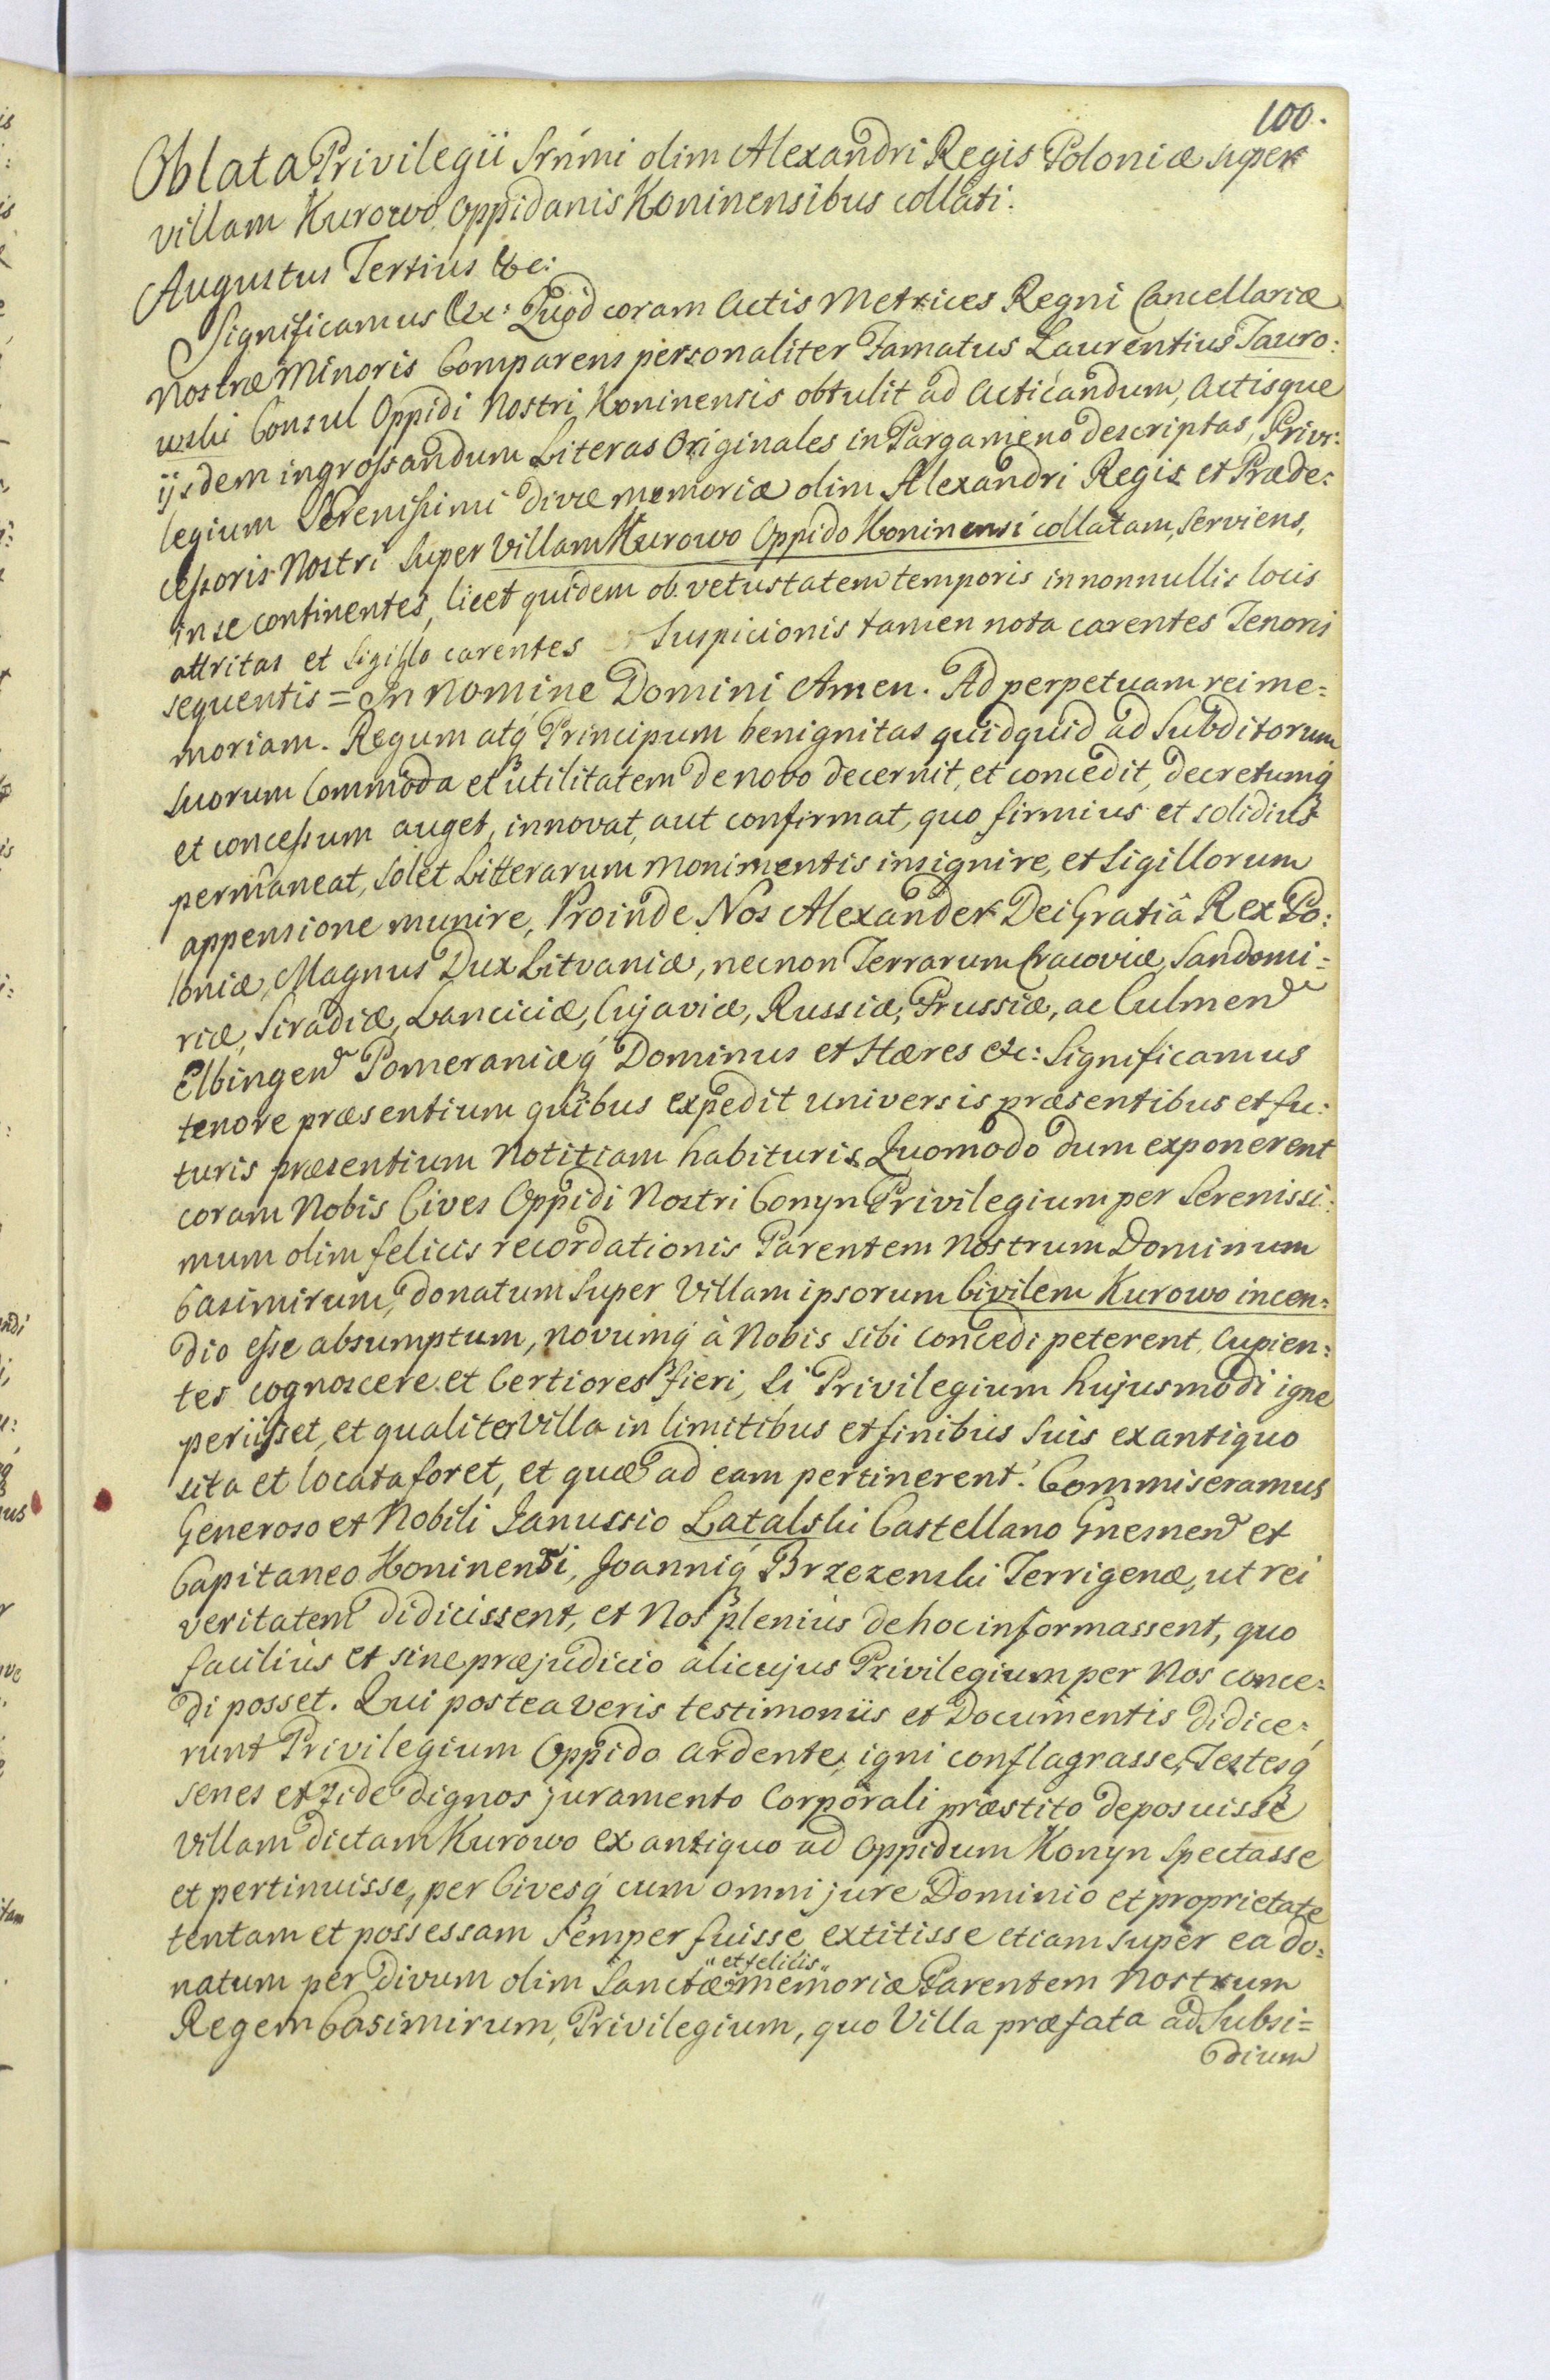 100.
Oblata Privilegii Srńmi olim Alexandri Regis Poloniæ super
villam Kurowo Oppidanis Koninensibus collati.
Augustus Tertius &c:
Significamus &c: Quod coram Actis Metrices Regni Cancellariæ
Nostræ Minoris Comparens personaliter Famatus Laurentius Tauro:
wski Consul Oppidi Nostri Koninensis obtulit ad Acticandum, Actisque
ijsdem ingrossandum Literas Originales in Pargameno descriptas, Privi:
legium Serenissimi Divæ memoriæ olim Alexandri Regis et Præde:
cessoris Nostri super Villam Kurowo Oppido Koninensi collatam, serviens,
in se continentes, licet quidem ob vetustatem temporis in nonnullis locis
attritas et Sigillo carentes Suspicionis tamen nota carentes Tenoris
sequentis = In Nomine Domini Amen. Ad perpetuam rei me=
moriam. Regum atq́ Principum benignitas quidquid ad Subditorum
suorum Commoda et utilitatem de novo decernit, et concedit, decretumq́
et concessum auget, innovat, aut confirmat, quo firmius et solidius
permaneat, solet Litterarum Monimentis insignire, et Sigillorum
appensione munire, Proinde Nos Alexander Dei Gratiâ Rex Po:
loniæ, Magnus Dux Litvaniæ, necnon Terrarum Cracoviæ, Sandomi=
riæ, Siradiæ, Lanciciæ, Cujaviæ, Russiæ, Prussiæ, ac Culmen
Elbingen Pomeraniæq́ Dominus et Hæres etc: Significamus
tenore præsentium quibus expedit universis præsentibus et fu:
turis præsentium Notitiam habituris Quomodo dum exponerent
coram Nobis Cives Oppidi Nostri Conyn Privilegium per Serenissi:
mum olim felicis recordationis Parentem Nostrum Dominum
Casimirum, donatum super Villam ipsorum Civilem Kurowo incen=
dio esse absumptum, novumq́ à Nobis sibi concedi peterent, Cupien:
tes cognoscere et Certiores fieri, si Privilegium hujusmodi igne
periisset, et qualiter Villa in limitibus et finibus suis ex antiquo
sita et locata foret, et quæ ad eam pertinerent. Commiseramus
Generoso et Nobili Janussio Latalski Castellano Gnesnen et
Capitaneo Koninensi, Joanniq́ Brzezenski Terrigenæ, ut rei
veritatem didicissent, et Nos plenius de hoc informassent, quo
facilius et sine præjudicio alicujus Privilegium per Nos conce=
di posset. Qui postea veris testimoniis et Documentis didice:
runt Privilegium Oppido ardente, igni conflagrasse, Testesq́
senes et fide dignos juramento Corporali præstito deposuisse
Villam dictam Kurowo ex antiquo ad Oppidum Konyn spectasse
et pertinuisse, per Civesq́ cum omni jure Dominio et proprietate
tentam et possessam semper fuisse, extitisse etiam super ea do:
natum per Divum olim Sanctæ "et felicis" memoriæ Parentem Nostrum
Regem Casimirum, Privilegium, quo Villa præfata ad Subsi=
dium